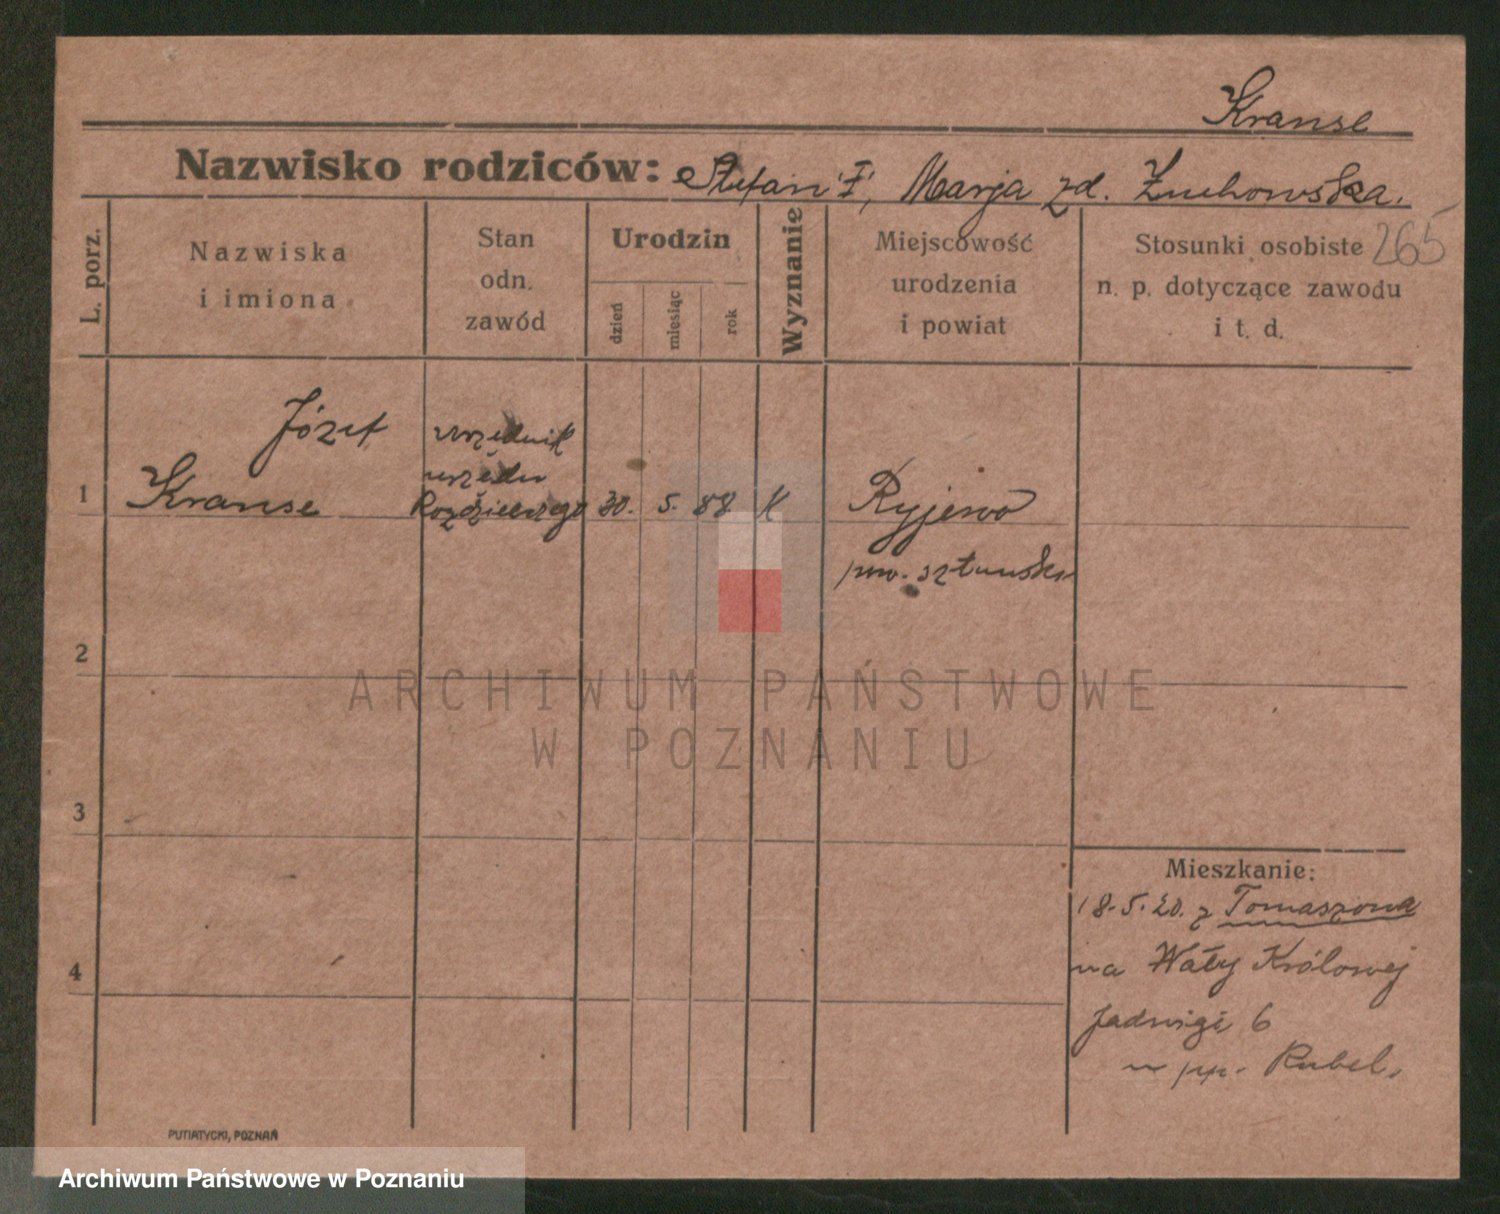 Kranse
Nazwisko rodziców: Stefan 'I', Marja zd. Żuchowska.
265
L. porz.
Nazwiska
i imiona
Stan
odn.
zawód
Urodzin
dzień
miesiąc
rok
Wyznanie
Miejscowość
urodzenia
i powiat
Stosunki osobiste
n. p. dotyczące zawodu
i t. d.
Józef
urzędnik
urzędu
1 Kranse Rozdzielczego 30. 5. 88 K Ryjewo
pow. sztumski
2
3
4
Mieszkanie:
18.5.20. z Tomaszowa
na Wały Królowej
Jadwigi 6
u pp. Rubel.
PUTIATYCKI, POZNAŃ
ARCHIWUM PAŃSTWOWE
W POZNANIU
Archiwum Państwowe w Poznaniu